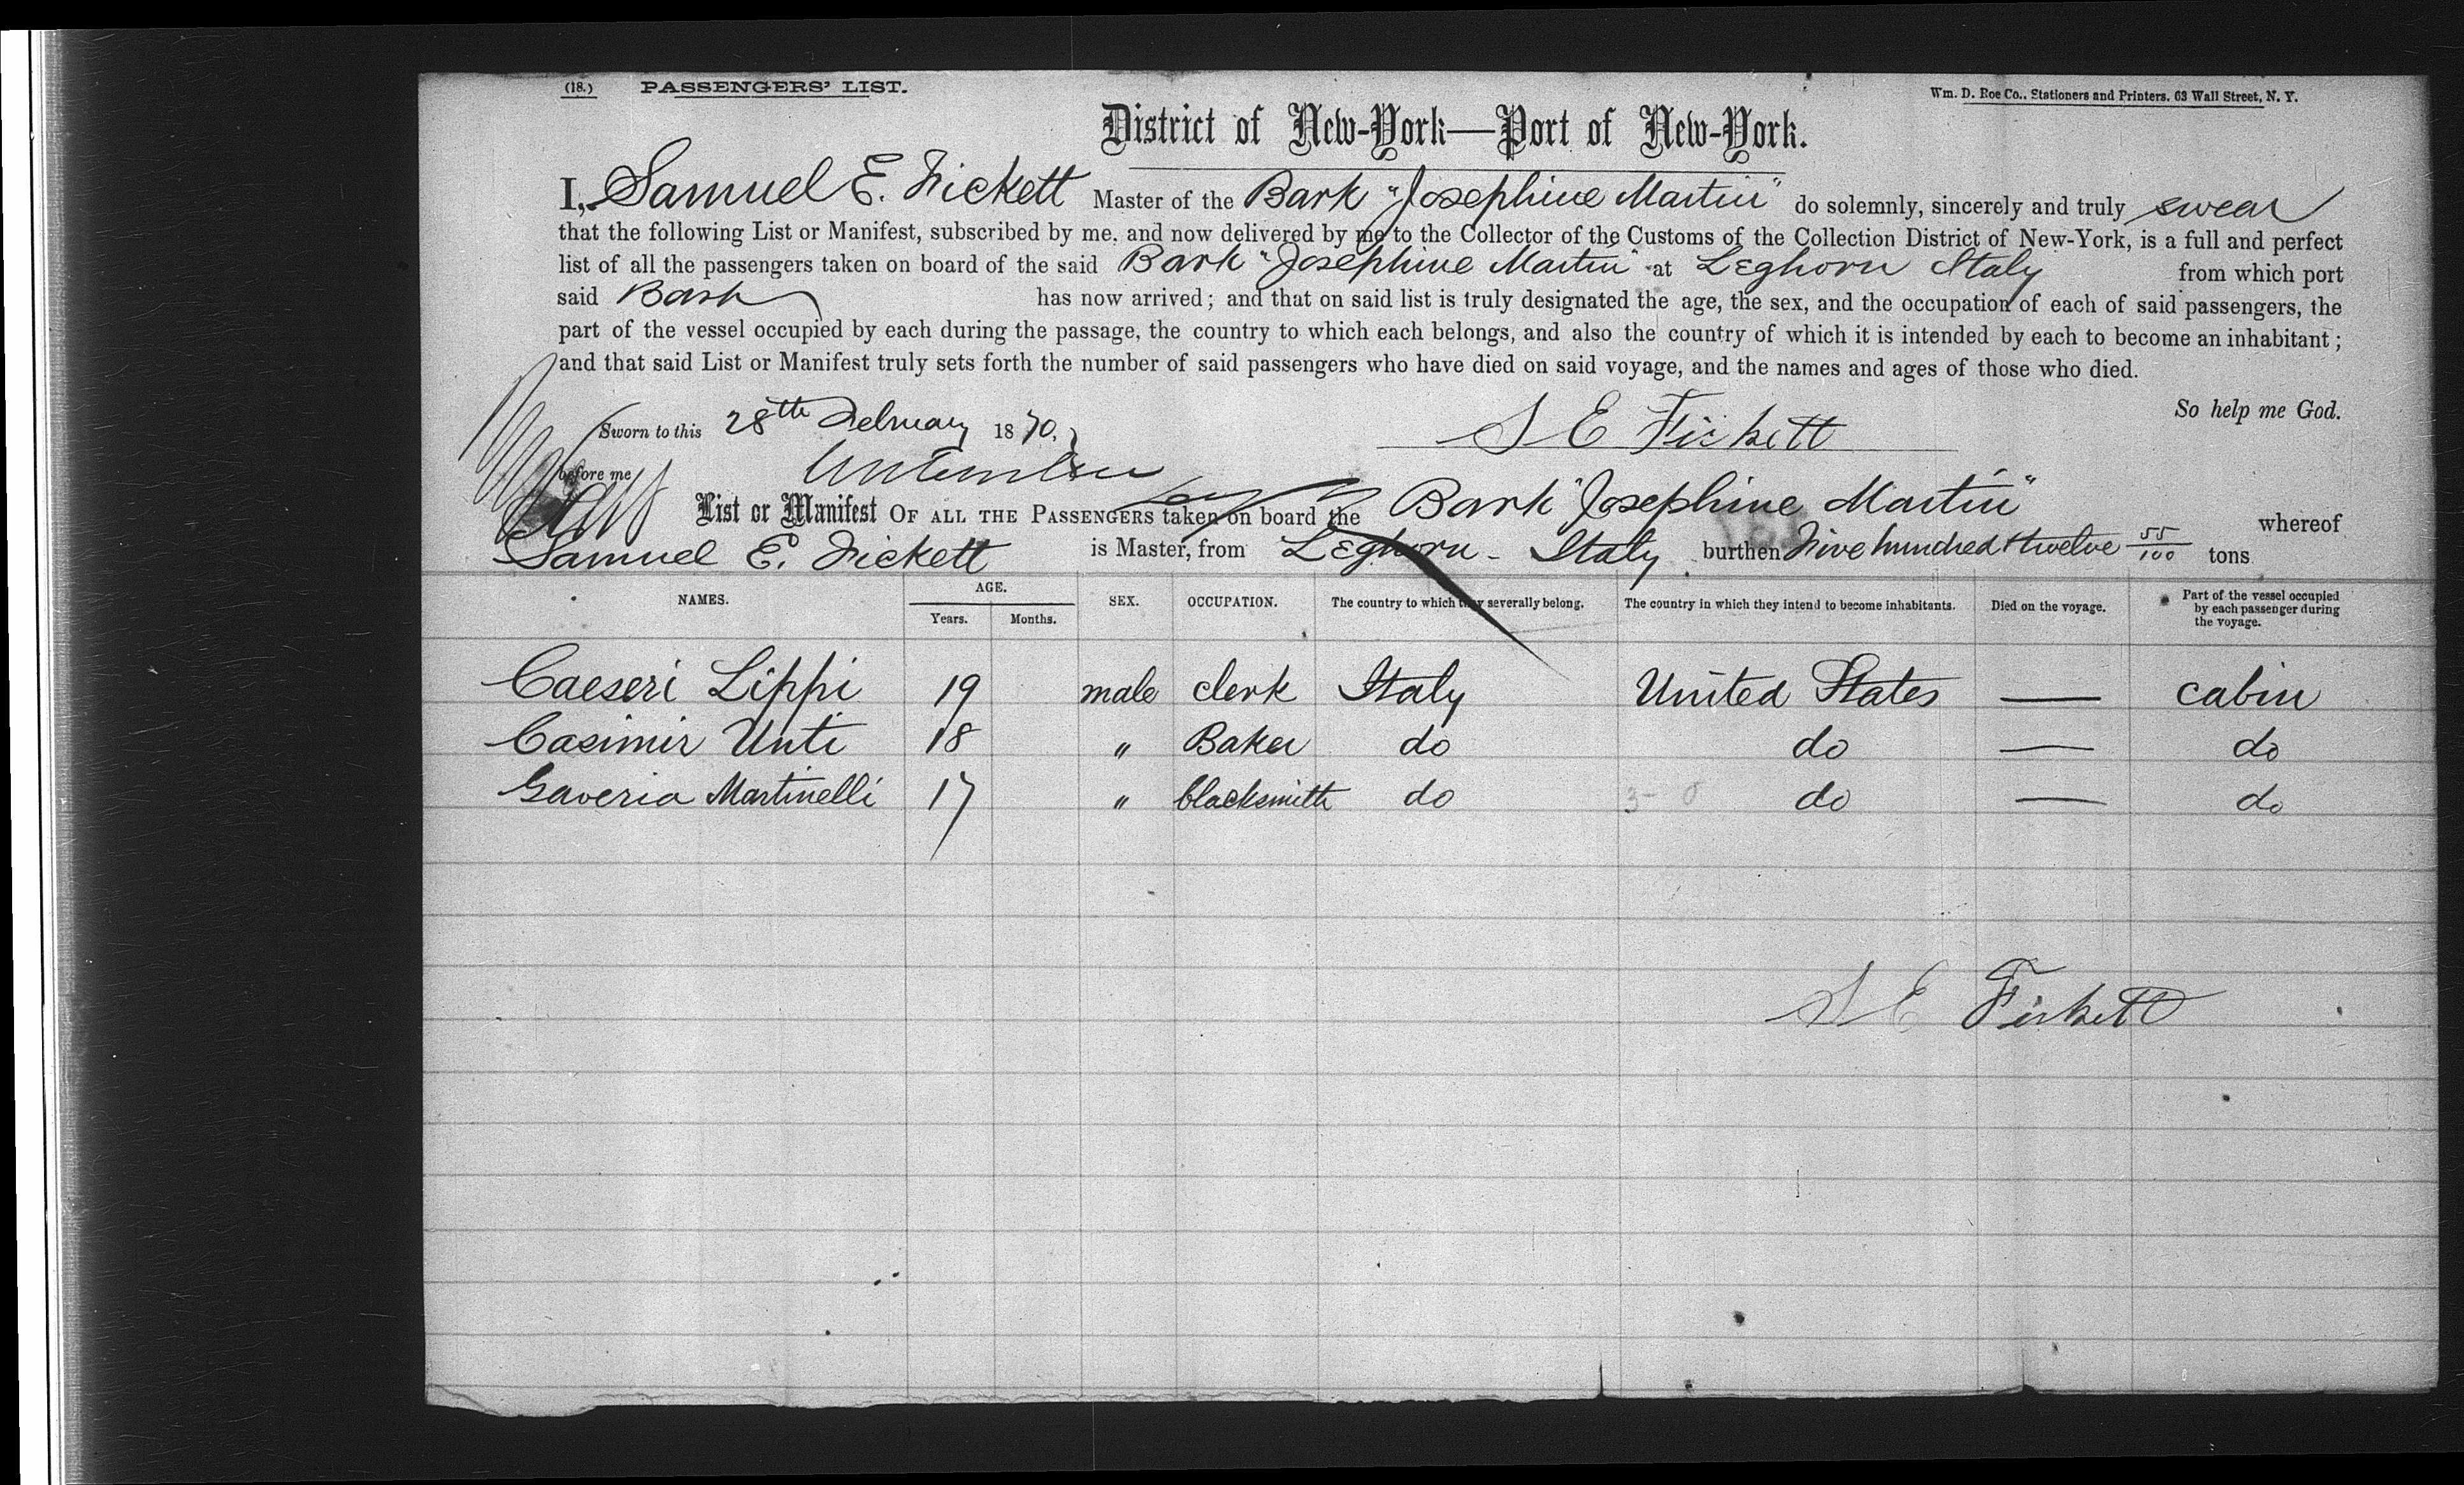 (18.) PASSENGERS' LIST. Wm. D. Roe Co., Stationers and Printers, 63 Wall Street, N. Y.
District of New-York—Port of New-York.
I, Samuel E. Fickett Master of the Bark "Josephine Martin" do solemnly, sincerely and truly swear
that the following List or Manifest, subscribed by me, and now delivered by me to the Collector of the Customs of the Collection District of New-York, is a full and perfect
list of all the passengers taken on board of the said Bark "Josephine Martin" at Leghorn Italy from which port
said Bark has now arrived; and that on said list is truly designated the age, the sex, and the occupation of each of said passengers, the
part of the vessel occupied by each during the passage, the country to which each belongs, and also the country of which it is intended by each to become an inhabitant;
and that said List or Manifest truly sets forth the number of said passengers who have died on said voyage, and the names and ages of those who died.
So help me God.
Sworn to this 28th February 1870. S E Fickett
before me
List or Manifest OF ALL THE PASSENGERS taken on board the Bark "Josephine Martin" whereof
Samuel E. Fickett is Master, from Leghorn - Italy burthen Five hundred & twelve 55/100 tons
NAMES. AGE. Years. Months. SEX. OCCUPATION. The country to which they severally belong. The country in which they intend to become inhabitants. Died on the voyage. Part of the vessel occupied by each passenger during the voyage.
Caeseri Lippi 19 male clerk Italy United States — cabin
Casimir Unti 18 " Baker do do — do
Gaveria Martinelli 17 " blacksmith do do — do
S E Fickett